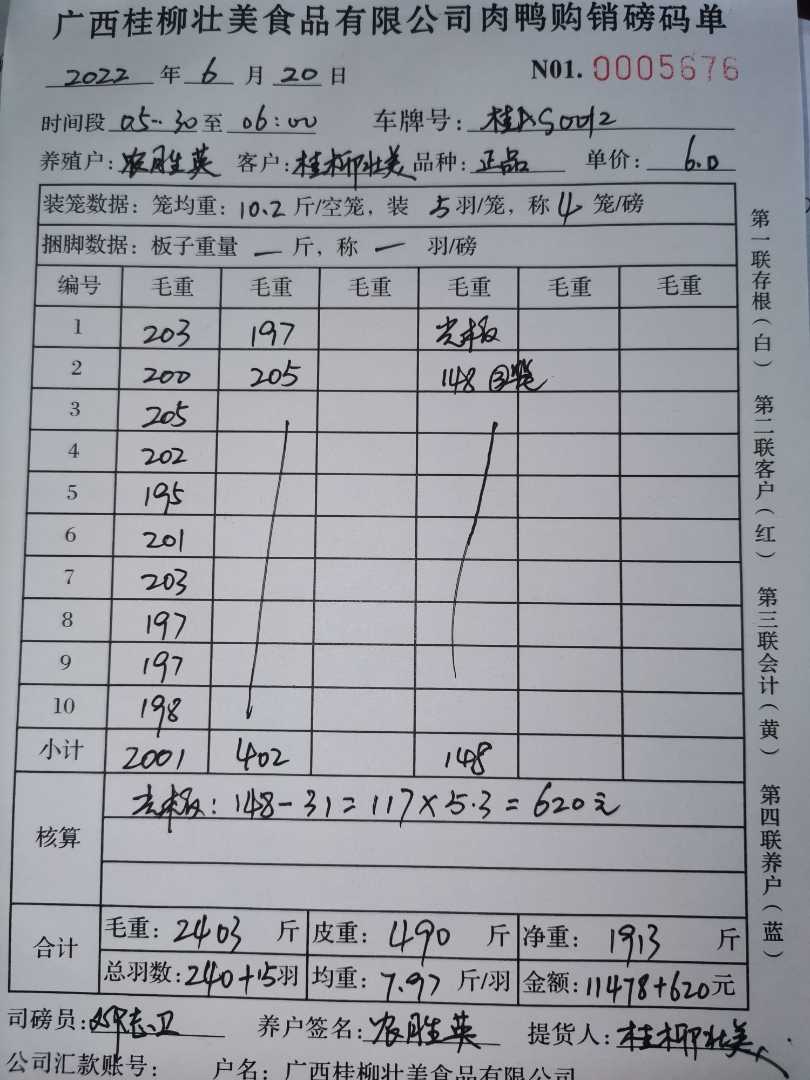 广西桂柳壮美食品有限公司肉鸭购销磅码单
2022 年 6 月 20 日 N01. 0005676
时间段 05:30 至 06:00 车牌号:
养殖户: 农胜英 客户: 桂柳壮美 品种: 正品 单价: 6.0
装笼数据: 笼均重: 10.2 斤/空笼, 装 5 羽/笼, 称 4 笼/磅
捆脚数据: 板子重量 一 斤, 称 一 羽/磅
编号 毛重 毛重 毛重 毛重 毛重 毛重
1 203 197 光板
2 200 205 148
3 205
4 202
5 195
6 201
7 203
8 197
9 197
10 198
小计 2001 402 148
核算 光板: 148-31=117×5.3=620元
合计 毛重: 2403 斤 皮重: 490 斤 净重: 1913 斤
总羽数: 240+15羽 均重: 7.97 斤/羽 金额: 11478+620元
司磅员: 养户签名: 农胜英 提货人: 桂柳壮美
公司汇款账号: 户名: 广西桂柳壮美食品有限公司
第一联存根(白) 第二联客户(红) 第三联会计(黄) 第四联养户(蓝)